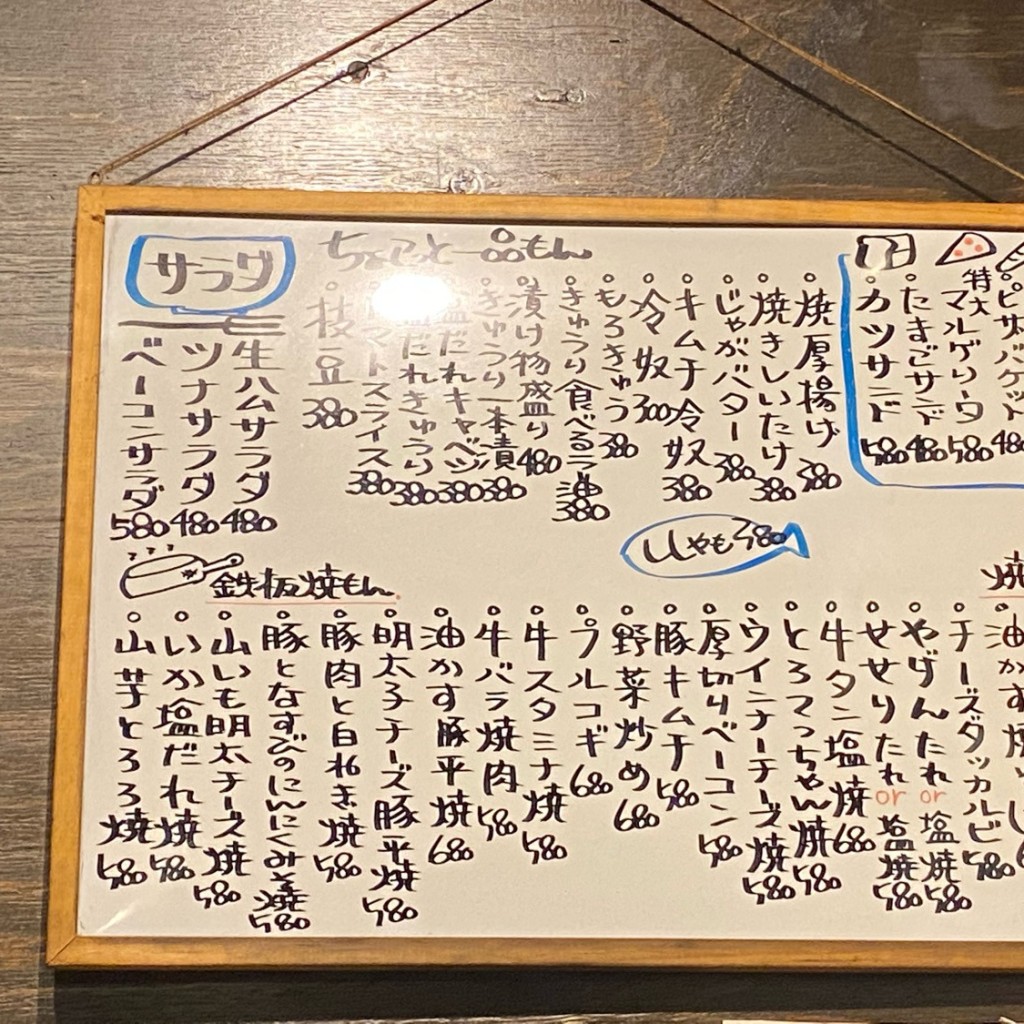 ピザバケット 480
特大マルゲリータ 580
たまごサンド 480
カツサンド 580
ちょっと一品もん
焼厚揚げ 380
焼きしいたけ 380
じゃがバター 380
キムチ冷奴 380
冷奴 300
もろきゅう 380
きゅうり食べるラー油 380
漬け物盛り 480
きゅうり一本漬 380
塩だれキャベツ 380
だれきゅうり 380
トマトスライス 380
枝豆 380
サラダ
生ハムサラダ 480
ツナサラダ 480
ベーコンサラダ 580
ししゃも 380
鉄板焼もん
焼
油かす焼
チーズダッカルビ 580
やげんたれor塩焼 580
せせりたれor塩焼 580
牛タン塩焼 680
とろてっちゃん焼 580
ウインナーチーズ焼 580
厚切りベーコン 580
豚キムチ 580
野菜炒め 680
プルコギ 680
牛スタミナ焼 580
牛バラ焼肉 580
油かす豚平焼 680
明太子チーズ豚平焼 580
豚肉と白ねぎ焼 580
豚となすびのにんにくみそ焼 580
山いも明太チーズ焼 580
いか塩だれ焼 580
山芋とろろ焼 580